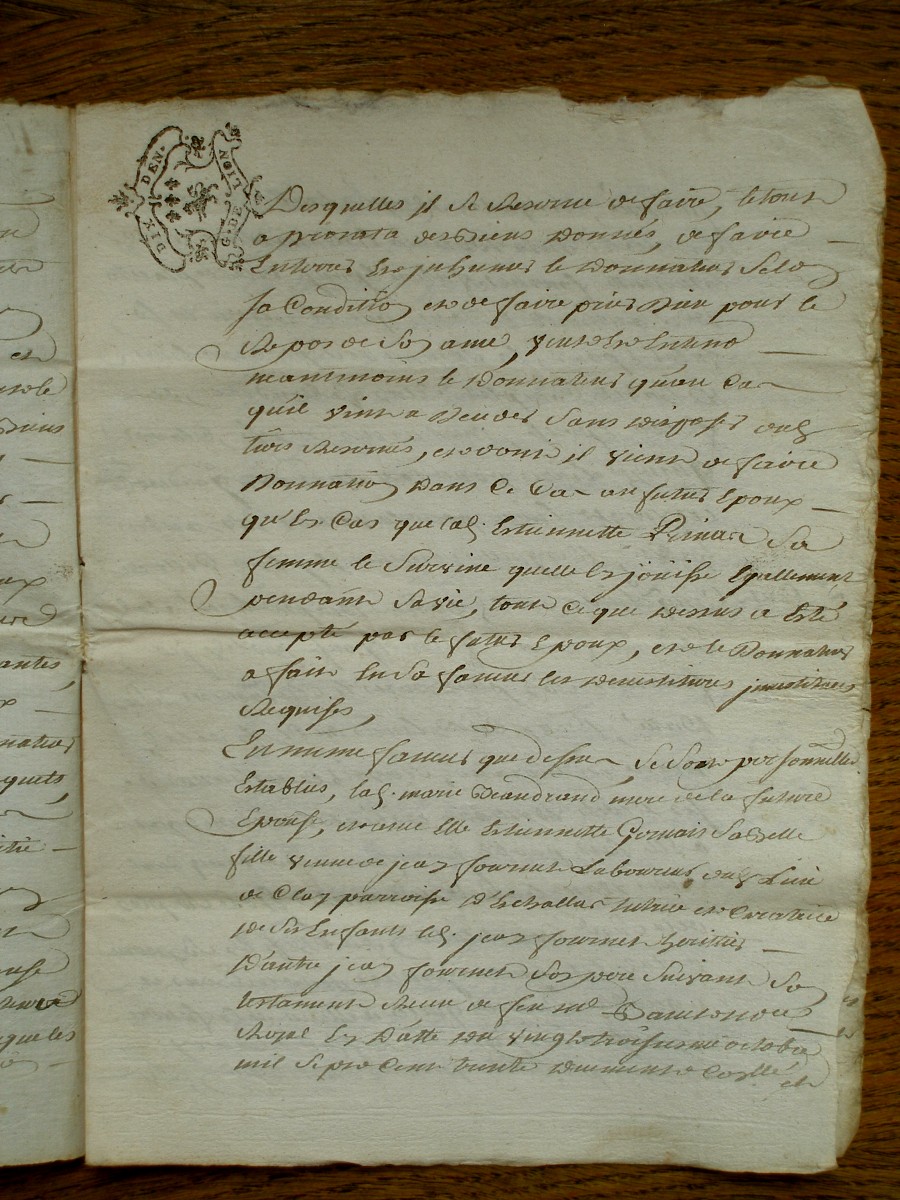 DIX DEN.
G. DE LION
Desquelles il Se Reserve de faire, le tout
a prorata des Biens Donnés, de faire
Enterrer et inhumer le Donnateur Selon
Sa Condition et de faire prier Dieu pour le
Repos de Son ame, veut et Entend
neantmoins le Donnateur qu'au Cas
qu'il vint a Deceder Sans disposer
Reservés, et dont il vient de faire
Donnation Dans Ce Cas au futur Epoux
qu'En Cas que lad. Estiennette Sa
femme le Survive quelle En jöuisse Egallement
pendant Sa vie, tout Ce que Dessus a Esté
accepté par le futur Epoux, et le Donnateur
a fait En Sa faveur les devestitures investitures
Requises,
En meme faveur que dessus Se Sont personnellem.
Establies, lad. marie mere de la future
Epouse, et avec Elle Estiennette Gervais Sa Belle
fille veuve de jean fournet Laboureur du Lieu
de parroisse D'Echallas tutrice et Curatrice
de Ses Enfants jean fournet heritier
D'autre jean fournet Son pere Suivant Son
testament Receu de feu me
Royal En Datte du vingt troisieme octobre
mil Sept Cent trente Duement Conllé et